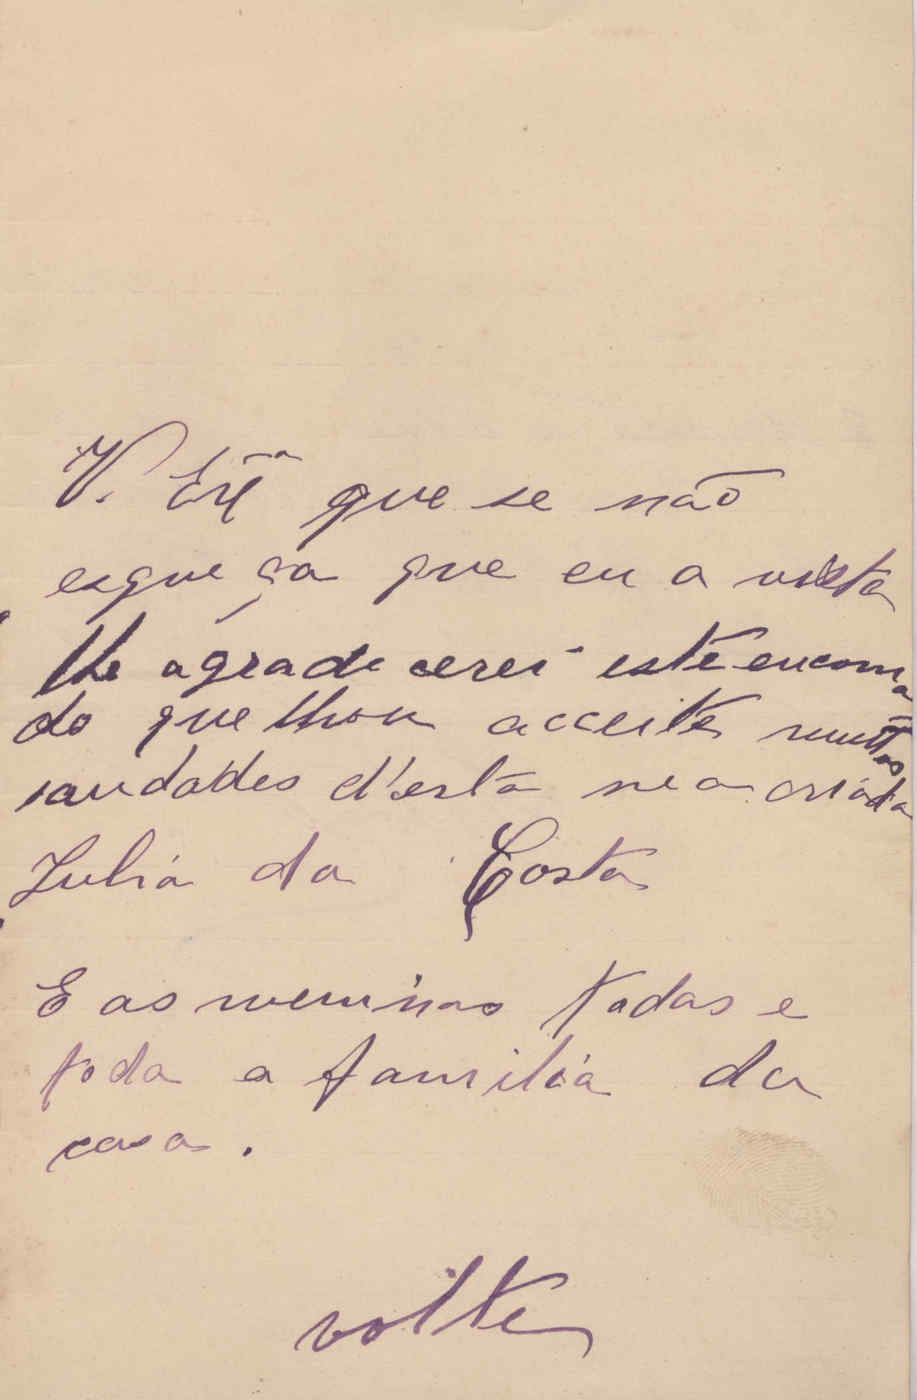 V. Exª que se não
esque ça que eu a vista
lhe agrade cerei este encoma
do que lhou acceite muitas
saudades d'esta sua criada
Julia da Costa
E as meninas todas e
toda a familia da
casa.
volte